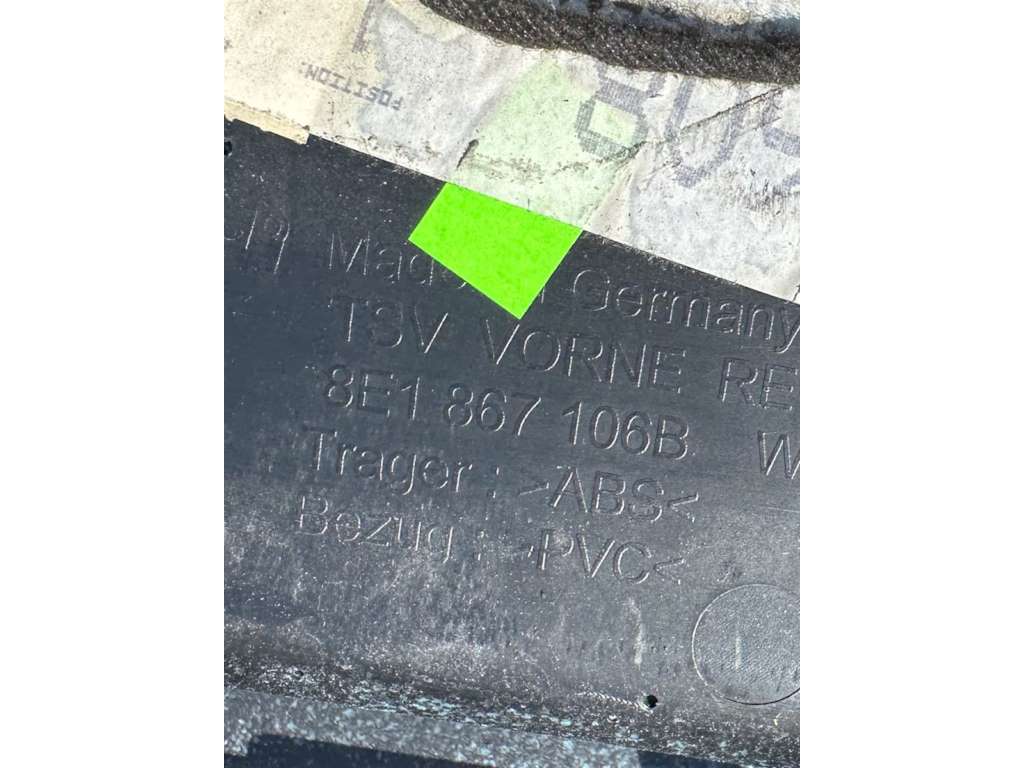 POSITION:
809
Made in Germany
TSV VORNE RE
8E1 867 106B W
Trager : >ABS<
Bezug : >PVC<